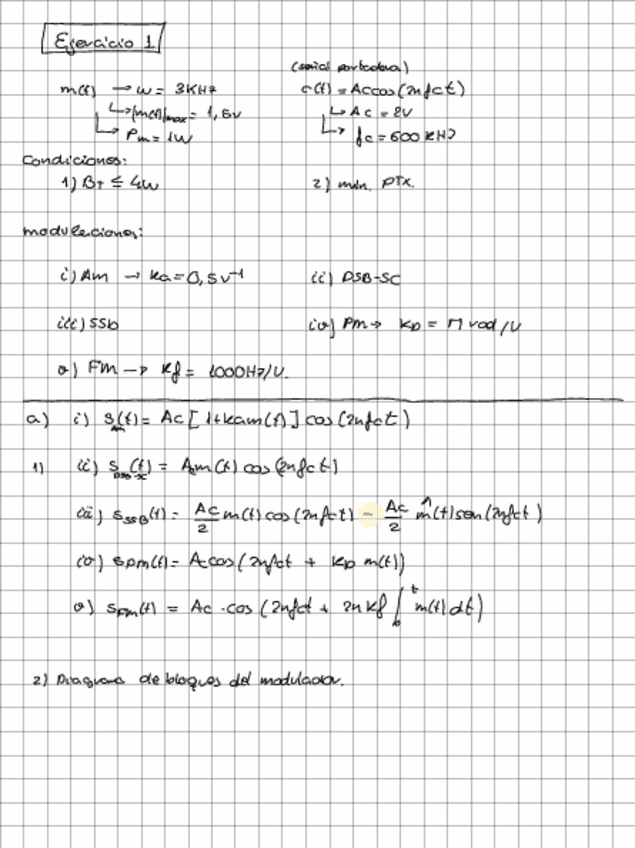 Ejercicio 1
(señal portadora)
m(t) → w = 3KHz c(t) = Ac cos(2πfct)
↳ |m(t)|max = 1,5v ↳ Ac = 2V
↳ Pm = 1W ↳ fc = 600 KHz
Condiciones:
1) BT ≤ 4w 2) min. PTx.
modulaciones:
i) Am → ka = 0,5v⁻¹ ii) DSB-SC
iii) SSb iv) Pm → kp = π rad/V
v) Fm → Kf = 1000Hz/V.
a) i) s_Am(t) = Ac [1+kam(t)] cos(2πfct)
1) ii) s_DSB-SC(t) = Acm(t) cos(2πfct)
iii) s_SSB(t) = Ac/2 m(t) cos(2πfct) - Ac/2 m̂(t) sen(2πfct)
iv) s_pm(t) = Accos(2πfct + kp m(t))
v) s_Fm(t) = Ac · cos(2πfct + 2πKf ∫₀ᵗ m(t)dt)
2) Diagrama de bloques del modulador.